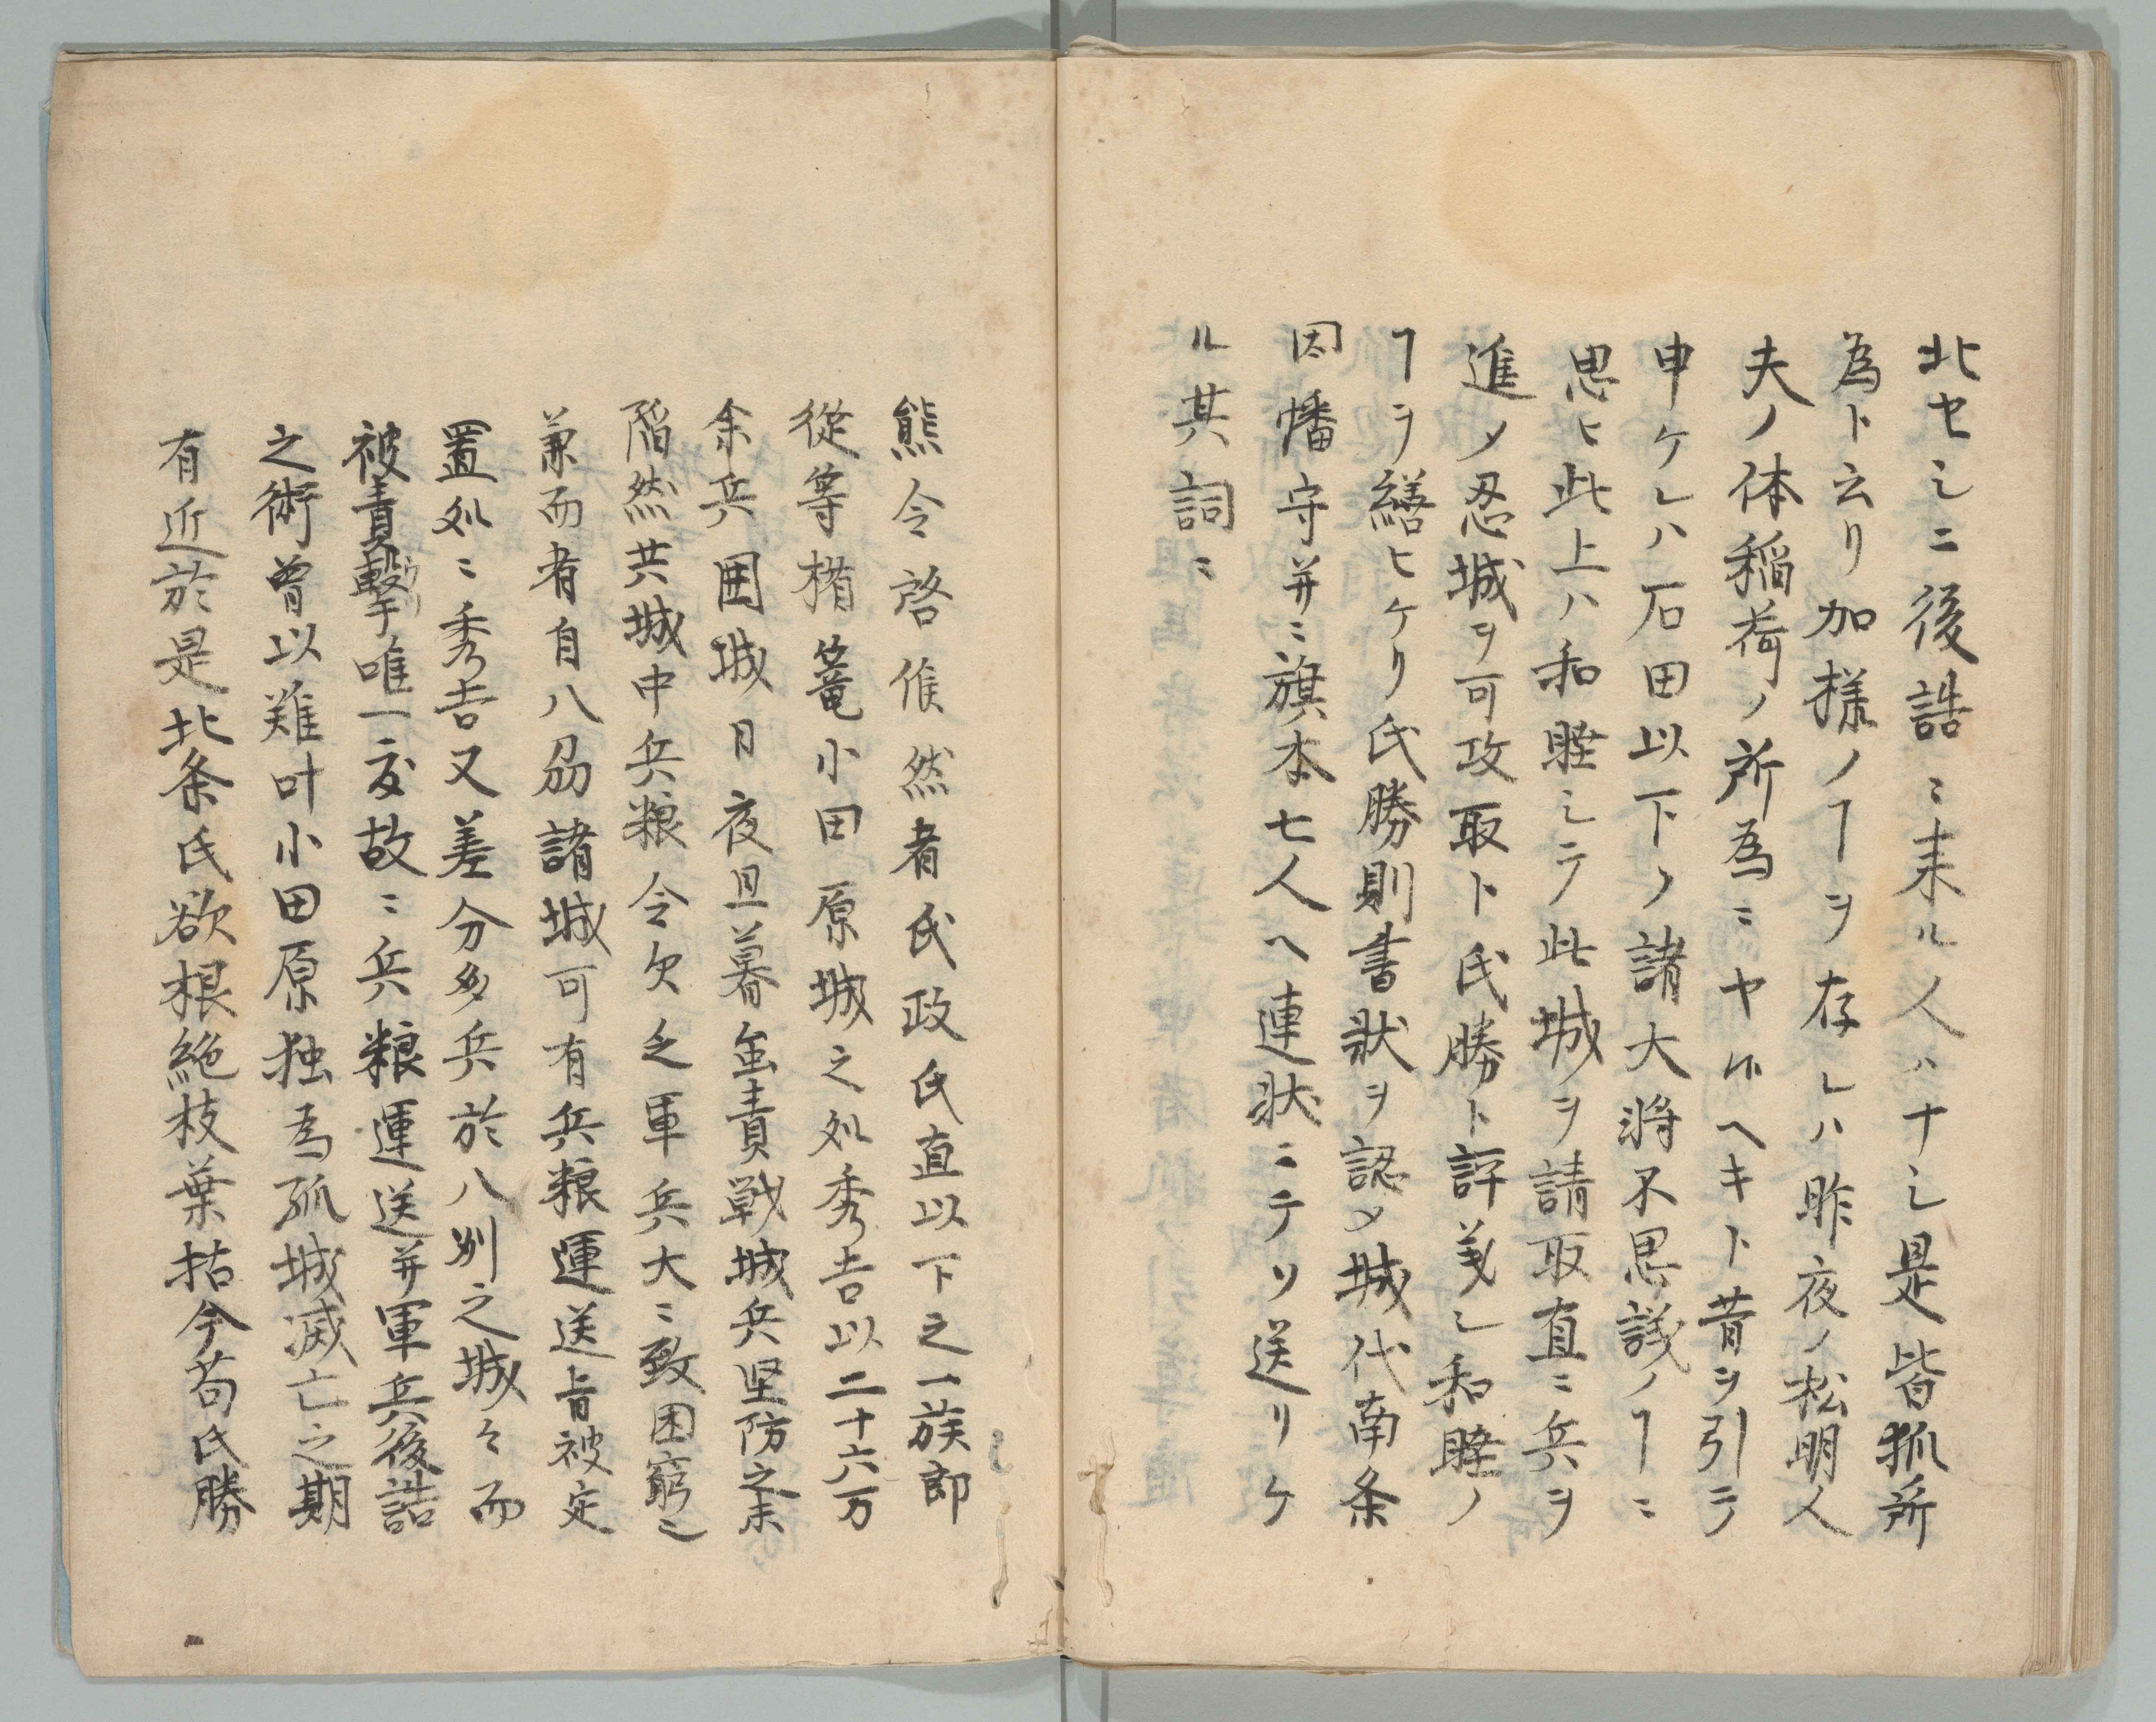 北セシニ後詰ニ耒ル人ハナシ是皆狐所
為ト云リ加様ノヿヲ存レハ昨夜ノ松明人
夫ノ体稲荷ノ所為ニヤ候ヘキト昔ヲ引テ
申ケレハ石田以下ノ諸大将不思議ノヿニ
思ヒ此上ハ和睦シテ此城ヲ請取直ニ兵ヲ
進メ忍城ヲ可攻取ト氏勝ト評義シ和睦ノ
ヿヲ繕ヒケリ氏勝則書状ヲ認メ城代南条
因幡守并ニ旗本七人ヘ連状ニテソ送リケ
ル其詞ニ
熊令啓候然者氏政氏直以下之一族郎
従等楯篭小田原城之処秀吉以二十六万
余兵囲城日夜旦暮虽責戦城兵堅防之未
陥然共城中兵粮令欠乏軍兵大ニ致困窮シ
兼而者自八刕諸城可有兵粮運送旨被定
置処ニ秀吉又差分多兵於八州之城々而
被責撃唯一度故ニ兵粮運送并軍兵後詰
之術曽以難叶小田原独為孤城滅亡之期
有近於是北条氏欲根絶枝葉枯今苟氏勝